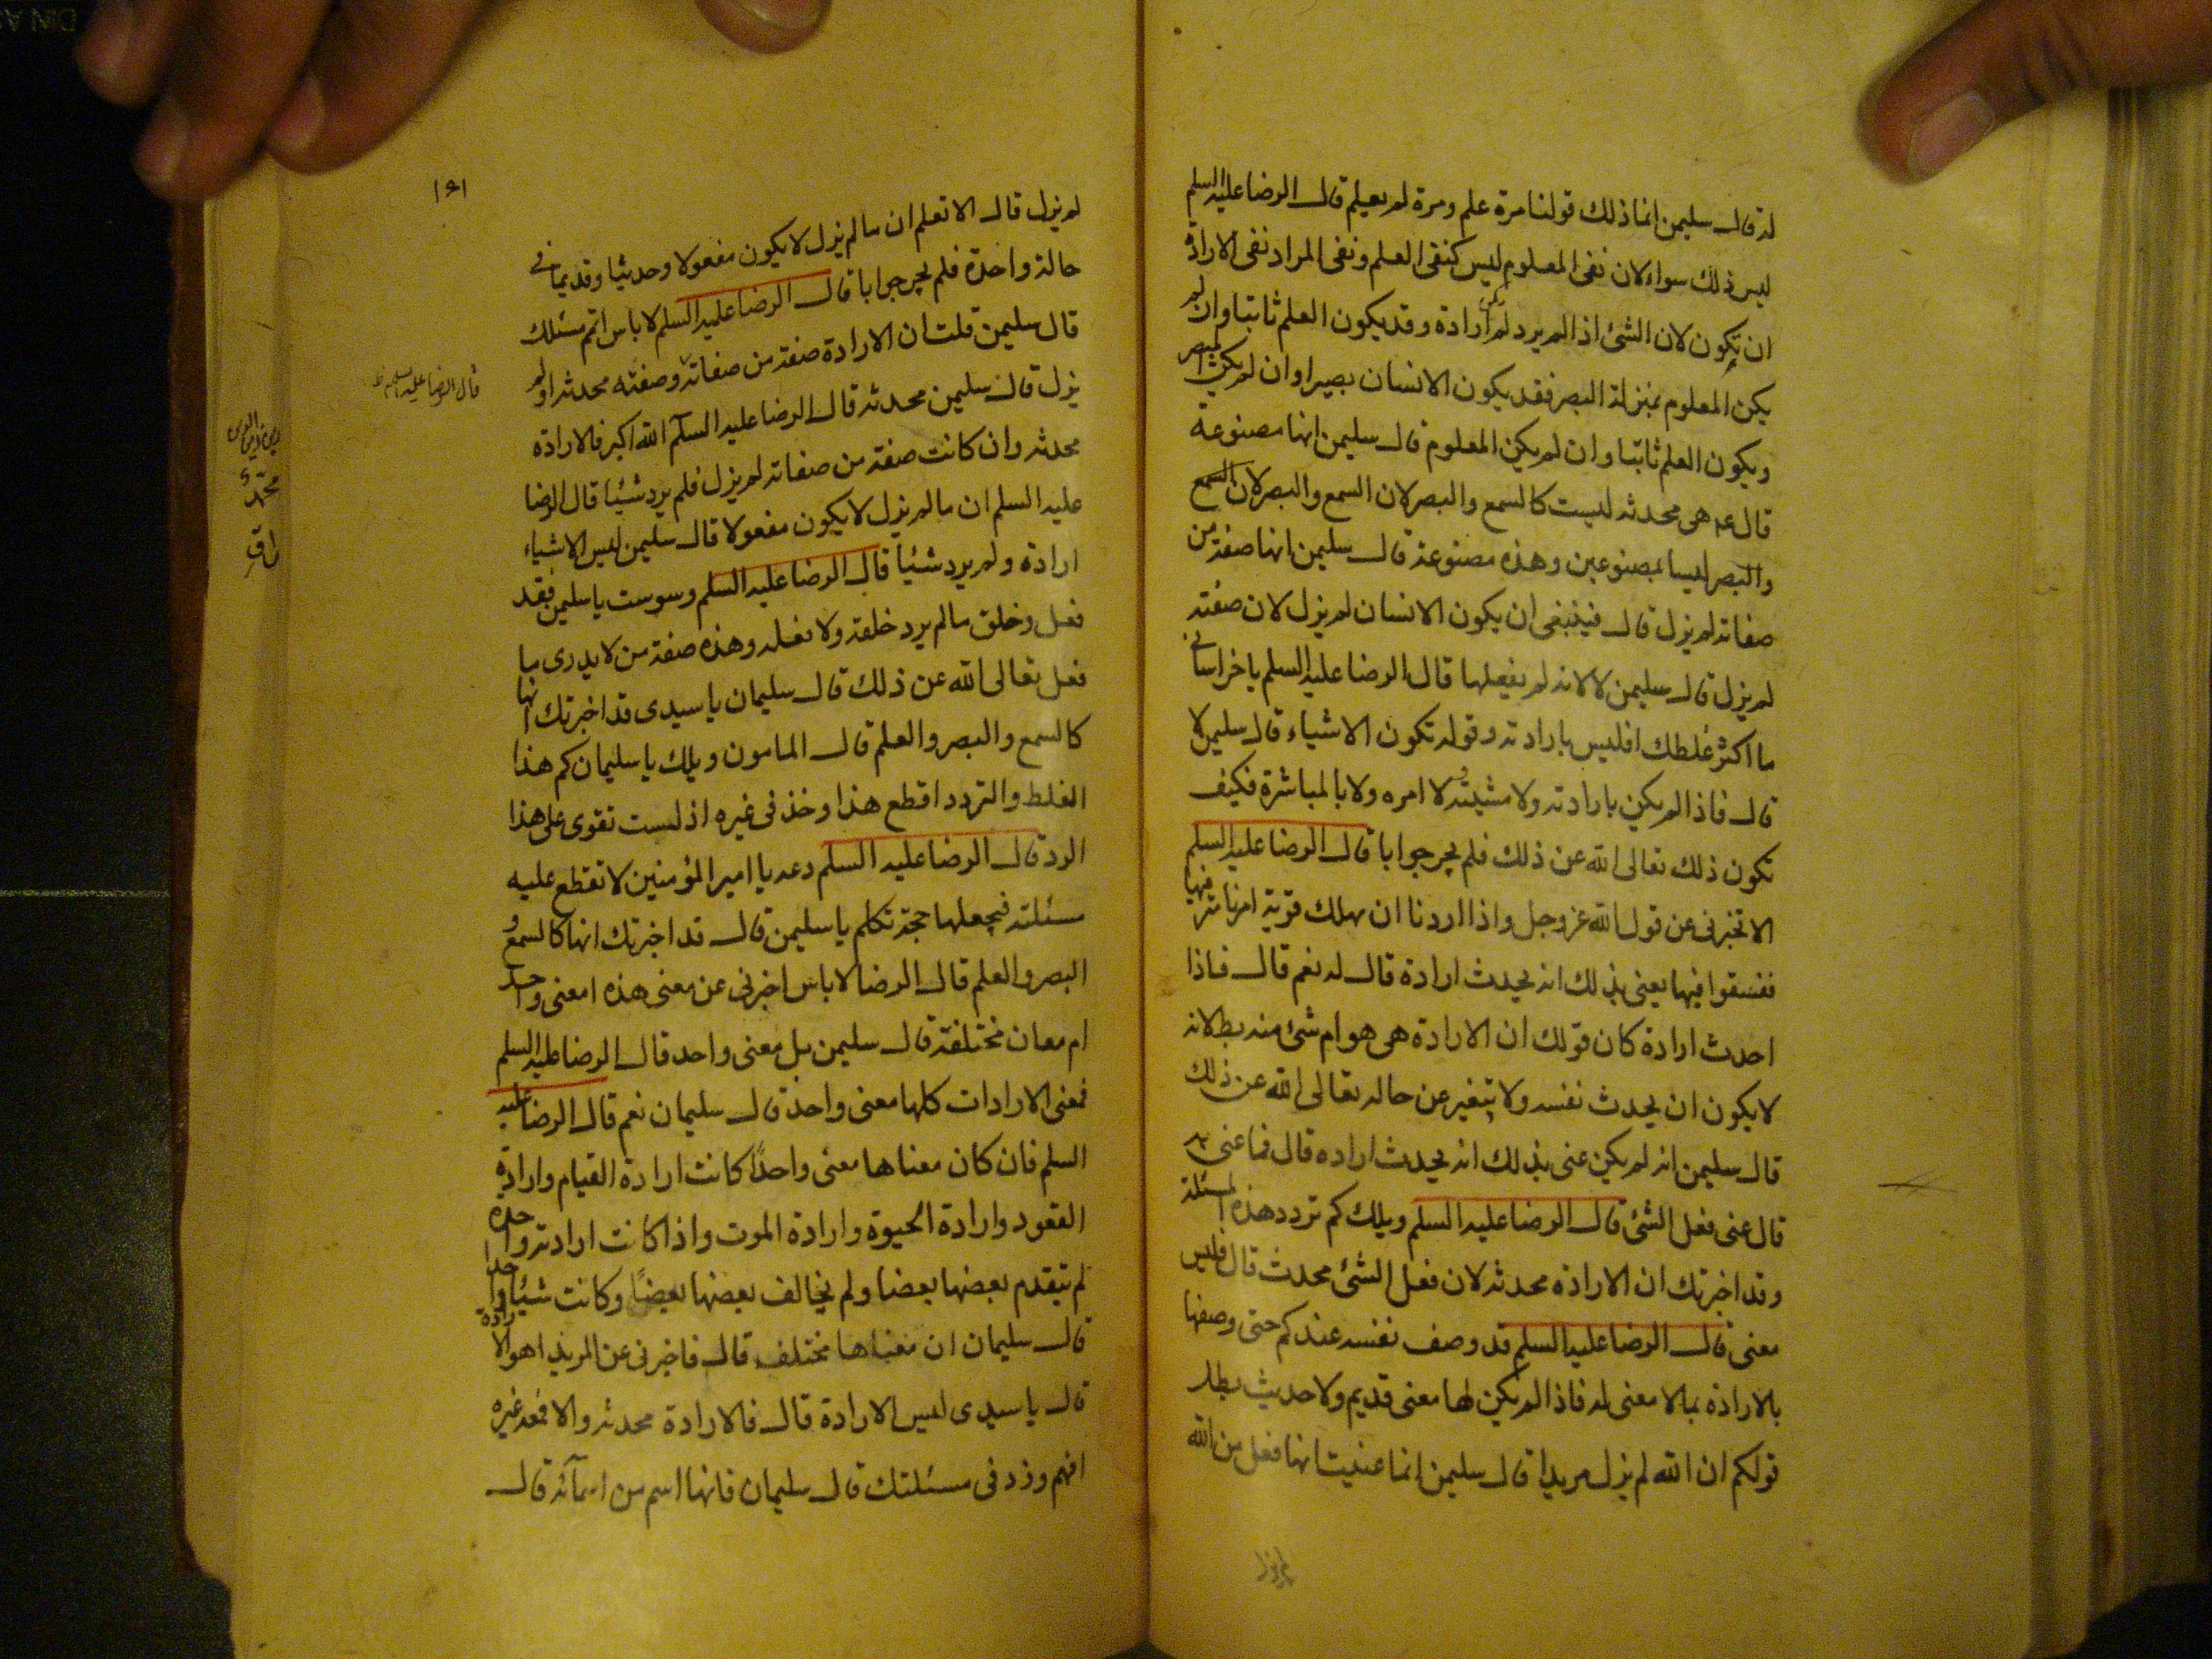 له قال سليمن انما ذلك قولنا مرة علم ومرة لم يعلم قال الرضا عليه السلم
ليس ذلك سواء لان نفى المعلوم ليس كنفى العلم ونفى المراد نفى الارادة
ان تكون لان الشئ اذا لم يرد لم يكن ارادة وقد يكون العلم ثابتا وان لم
يكن المعلوم بمنزلة البصر فقد يكون الانسان بصيرا وان لم يكن المبصر
ويكون العلم ثابتا وان لم يكن المعلوم قال سليمن انها مصنوعة
قال عم هى محدثه ليست كالسمع والبصر لان السمع والبصر لان السمع
والبصر ليسا بمصنوعين وهذه مصنوعة قال سليمن انها صفة من
صفاته لم يزل قال فينبغى ان يكون الانسان لم يزل لان صفته
لم يزل قال سليمن لا لانه لم يفعلها قال الرضا عليه السلم يا خراسانى
ما اكثر غلطك افليس بارادته وقوله تكون الاشياء قال سليمن لا
قال فاذا لم يكن بارادته ولا مشيته ولا امره ولا بالمباشرة فكيف
تكون ذلك تعالى الله عن ذلك فلم يحر جوابا قال الرضا عليه السلم
الا تخبرنى عن قول الله عز وجل واذا اردنا ان نهلك قرية امرنا مترفيها
ففسقوا فيها يعنى بذلك انه يحدث ارادة قال له نعم قال فاذا
احدث ارادة كان قولك ان الارادة هى هو ام شئ منه بطلانه
لا يكون ان يحدث نفسه ولا يتغير عن حاله تعالى الله عن ذلك
قال سليمن انه لم يكن عنى بذلك انه يحدث اراده قال فما عنى به
قال عنى فعل الشئ قال الرضا عليه السلم ويلك كم تردد هذه المسئلة
وقد اخبرتك ان الارادة محدثه لان فعل الشئ محدث قال فليس
معنى قال الرضا عليه السلم قد وصف نفسه عندكم حتى وصفها
بالارادة بما لا معنى له فاذا لم يكن لها معنى قديم ولا حديث بطل
قولكم ان الله لم يزل مريدا قال سليمن انما عنيت انها فعل من الله
لم يزل
لم يزل قال الا تعلم ان ما لم يزل لا يكون مفعولا وحديثا وقديما فى
حالة واحدة فلم يحر جوابا قال الرضا عليه السلم لا باس اتم مسئلتك
قال سليمن قلت ان الارادة صفة من صفاته وصفته محدثه او لم
قال الرضا عليه السلم
يزل قال سليمن محدثه قال الرضا عليه السلم الله اكبر فالارادة
محدثه وان كانت صفة من صفاته لم يزل فلم يرد شيئا قال الرضا
عليه السلم ان ما لم يزل لا يكون مفعولا قال سليمن ليس الاشياء
ارادة ولم يرد شيئا قال الرضا عليه السلم وسوست يا سليمن فقد
فعل وخلق ما لم يرد خلقه ولا فعله وهذه صفة من لا يدرى ما
فعل تعالى الله عن ذلك قال سليمان يا سيدى قد اخبرتك انها
كالسمع والبصر والعلم قال المامون ويلك يا سليمان كم هذا
الغلط والتردد اقطع هذا وخذ فى غيره اذ لست تقوى على هذا
الرد قال الرضا عليه السلم دعه يا امير المؤمنين لا تقطع عليه
مسئلته فيجعلها حجة تكلم يا سليمن قال قد اخبرتك انها كالسمع و
البصر والعلم قال الرضا لا باس اخبرنى عن معنى هذه امعنى واحد
ام معان مختلفة قال سليمن بل معنى واحد قال الرضا عليه السلم
فمعنى الارادات كلها معنى واحد قال سليمان نعم قال الرضا عليه
السلم فان كان معناها معنى واحدا كانت ارادة القيام وارادة
القعود وارادة الحيوة وارادة الموت واذا كانت ارادته واحدة
لم تتقدم بعضها بعضا ولم يخالف بعضها بعضا وكانت شيئا واحدا
قال سليمان ان معناها مختلف قال فاخبرنى عن المريد اهو الارادة
قال يا سيدى ليس الارادة قال فالارادة محدثه والا فمعه غيره
افهم وزد فى مسئلتك قال سليمان فانها اسم من اسمائه قال